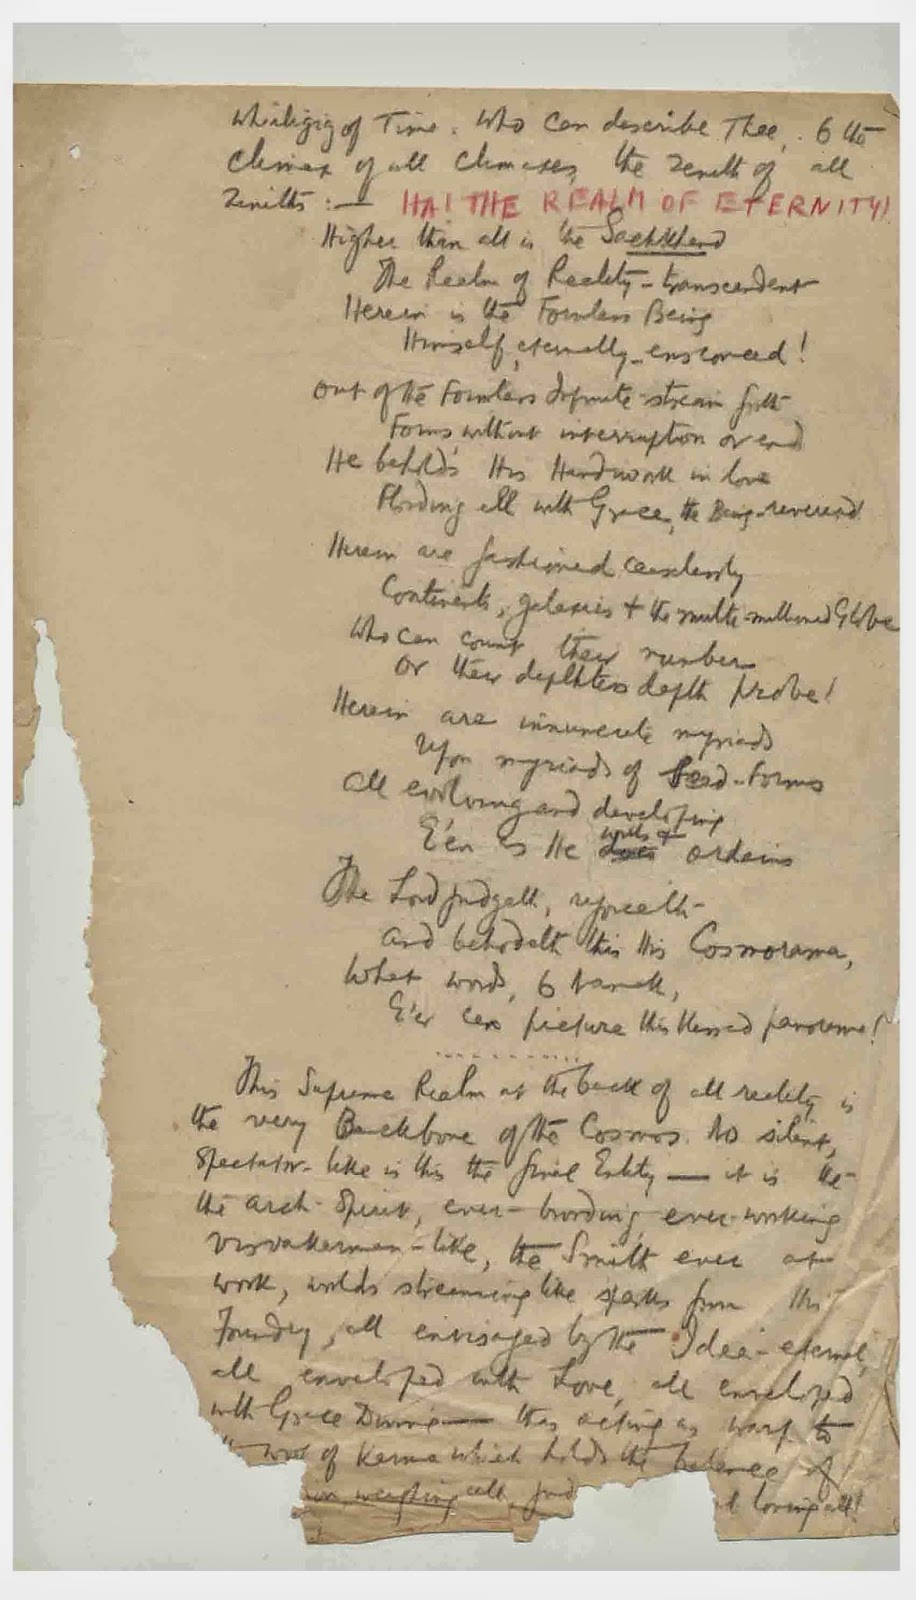 Whirligig of Time. Who can describe Thee, O the
Climax of all Climaxes, the Zenith of all
Zeniths :— HA! THE REALM OF ETERNITY!
Higher than all is the Sachkhand
The Realm of Reality-transcendent
Herein is the Formless Being
Himself, eternally-ensconced!
Out of the Formless Infinite stream forth
Forms without interruption or end
He beholds His Handiwork in love
Flooding all with Grace, the Being-reverend
Herein are fashioned ceaselessly
Continents, galaxies + the multi-millioned Globe
Who can count their number
Or their depthless depth probe!
Herein are innumerate myriads
Upon myriads of -Forms
All evolving and developing
E'en as He wills & ordains
The Lord judgeth, rejoiceth-
And beholdeth this His Cosmorama,
What words, O Nanak,
E'er can picture this blessed panorama!
This Supreme Realm at the back of all reality is
the very Backbone of the Cosmos. No silent,
Spectator-like is this the final Entity — it is the
the arch-Spirit, ever-brooding, ever-working
Visvakarman-like, the Smith ever at
work, worlds streaming like sparks from His
Foundry, all envisaged by the Idea-eternal,
all enveloped with Love, all enveloped
with Grace Divine — thus acting as warp to
woof of Karma which holds the balance of
weighing all, loving all!